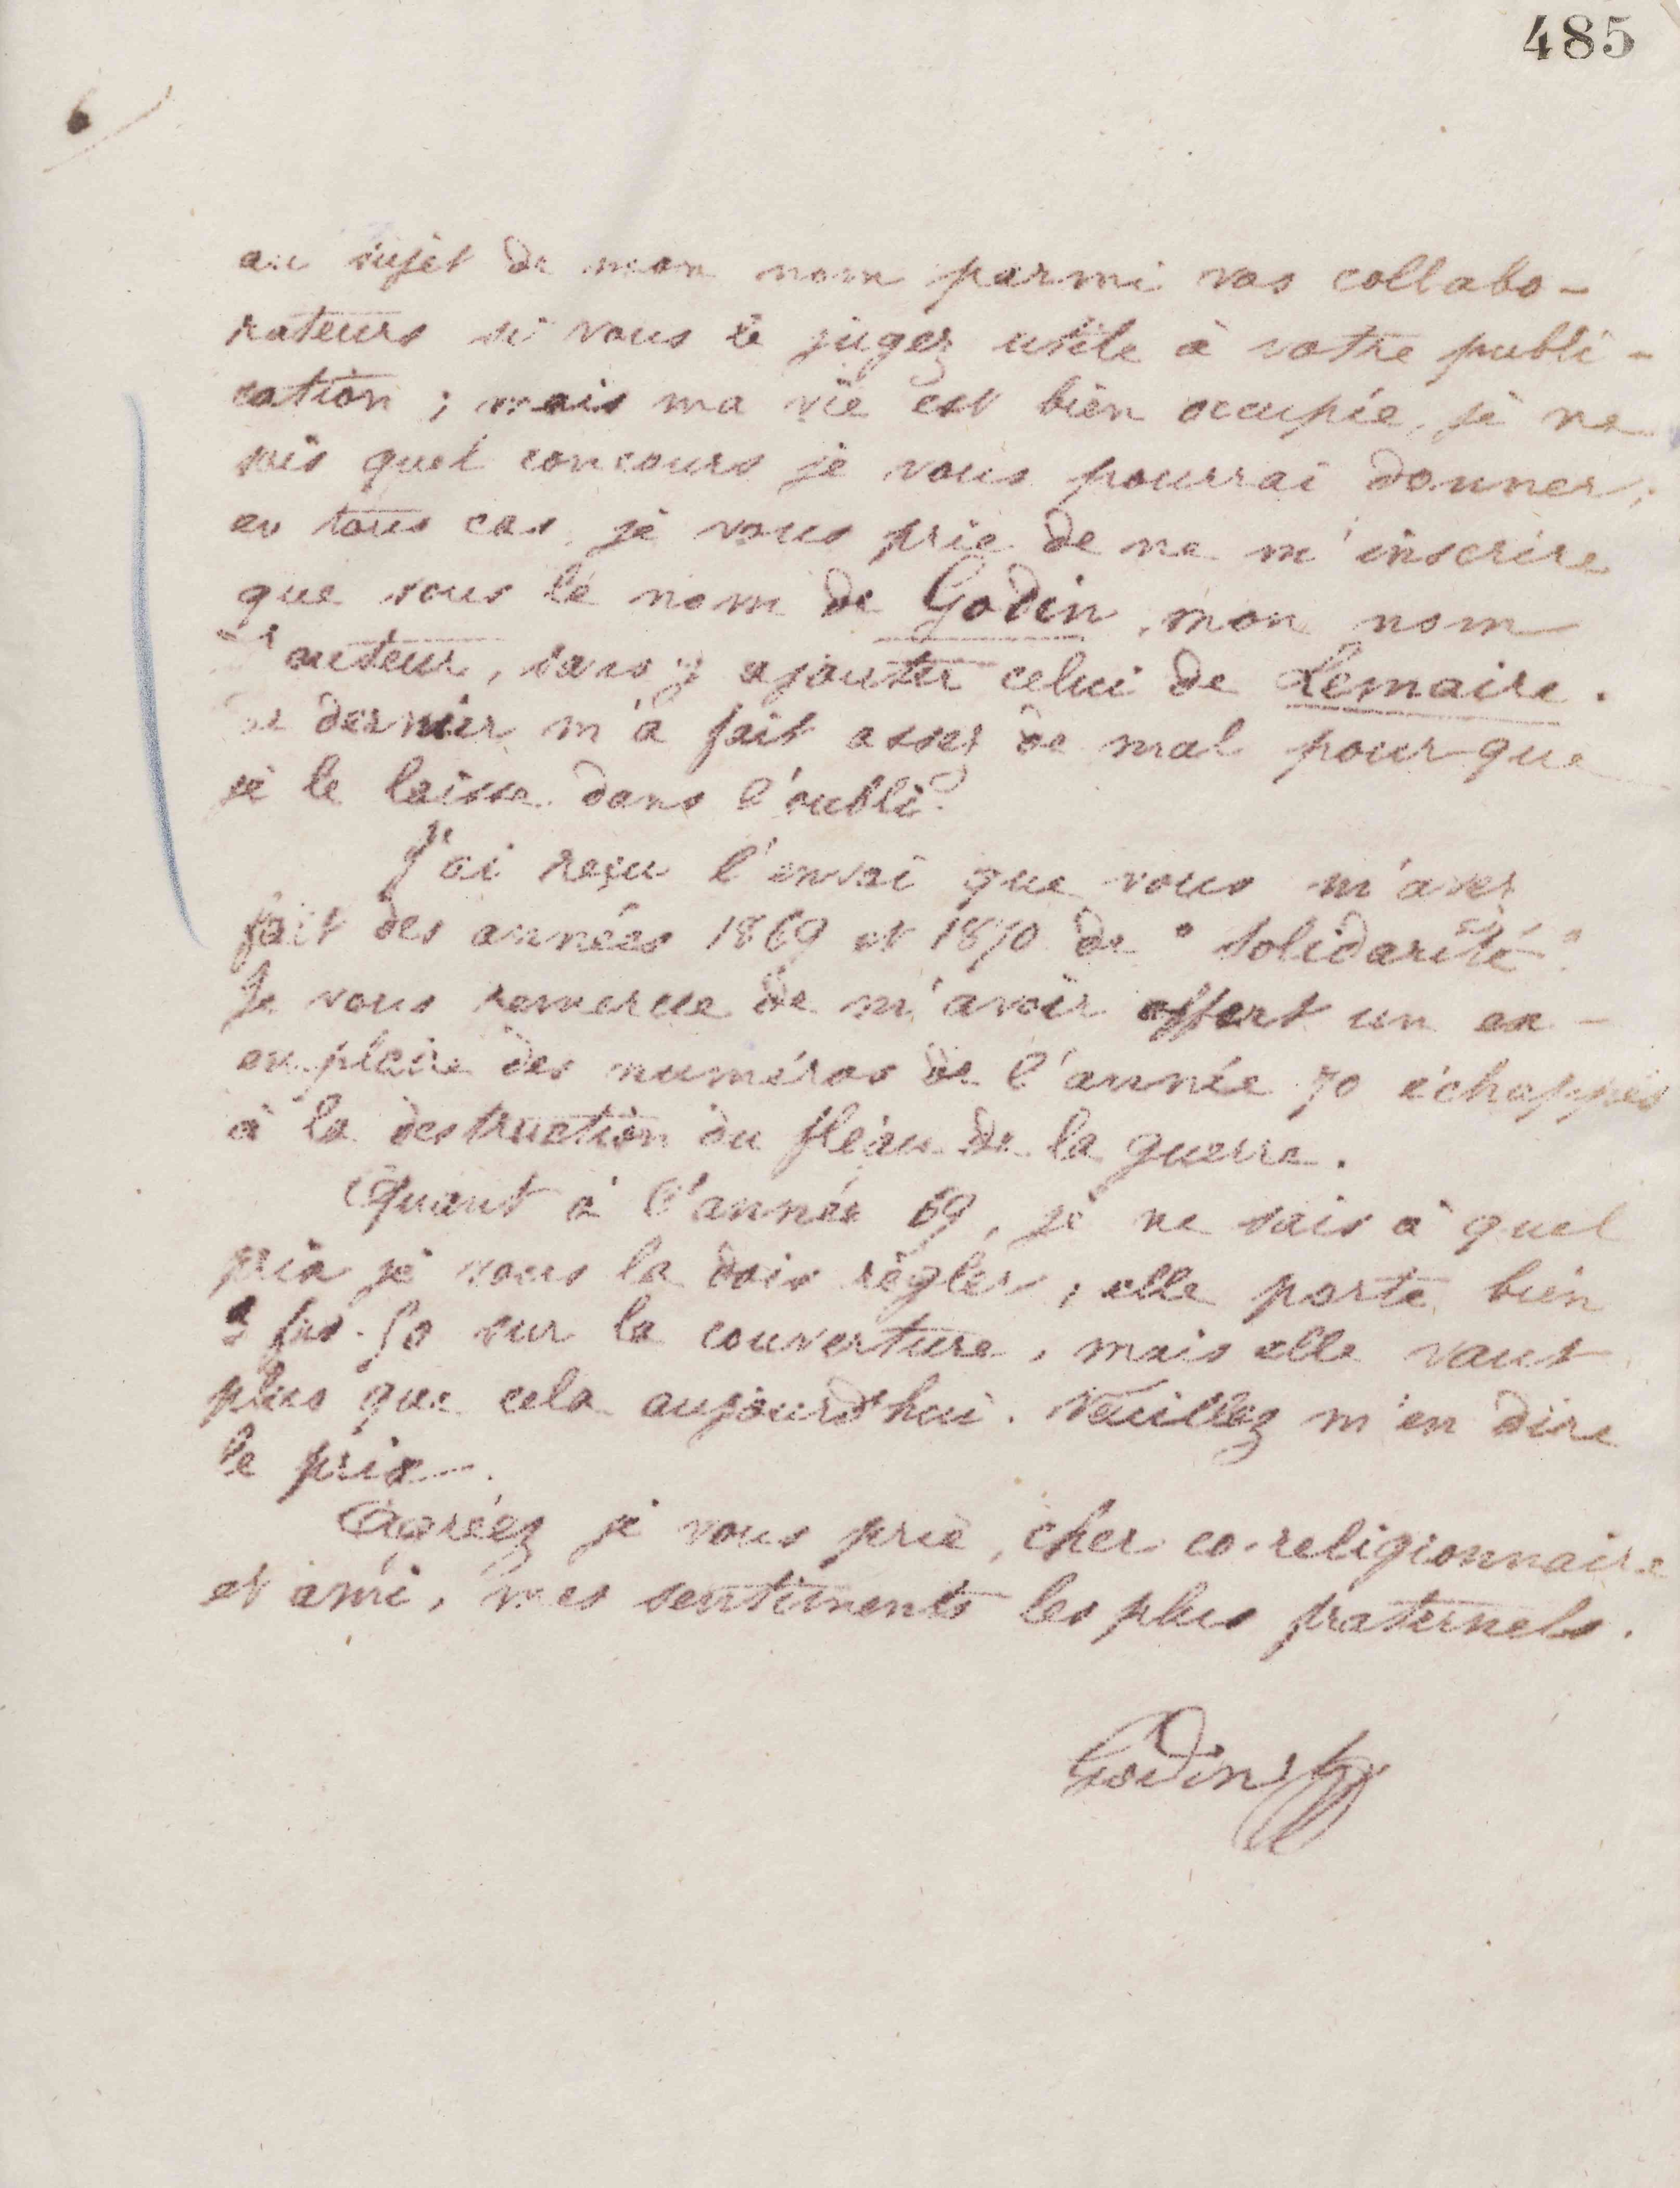 485
6
au sujet de mon nom parmi vos collabo-
rateurs si vous le jugez utile à votre publi-
cation ; mais ma vie est bien occupée, je ne
sais quel concours je vous pourrai donner ;
en tous cas, je vous prie de ne m'inscrire
que sous le nom de Godin, mon nom
d'auteur, sans y ajouter celui de Lemaire.
Ce dernier m'a fait assez de mal pour que
je le laisse dans l'oubli.
J'ai reçu l'envoi que vous m'avez
fait des années 1869 et 1870 de "Solidarité".
Je vous remercie de m'avoir offert un ex-
emplaire des numéros de l'année 70 échappés
à la destruction du fléau de la guerre.
Quant à l'année 69, je ne sais à quel
prix je vous la dois régler, elle porte bien
frs. 50 sur la couverture, mais elle vaut
plus que cela aujourd'hui. Veuillez m'en dire
le prix.
Agréez je vous prie, cher co-religionnaire
et ami, mes sentiments les plus fraternels.
Godin